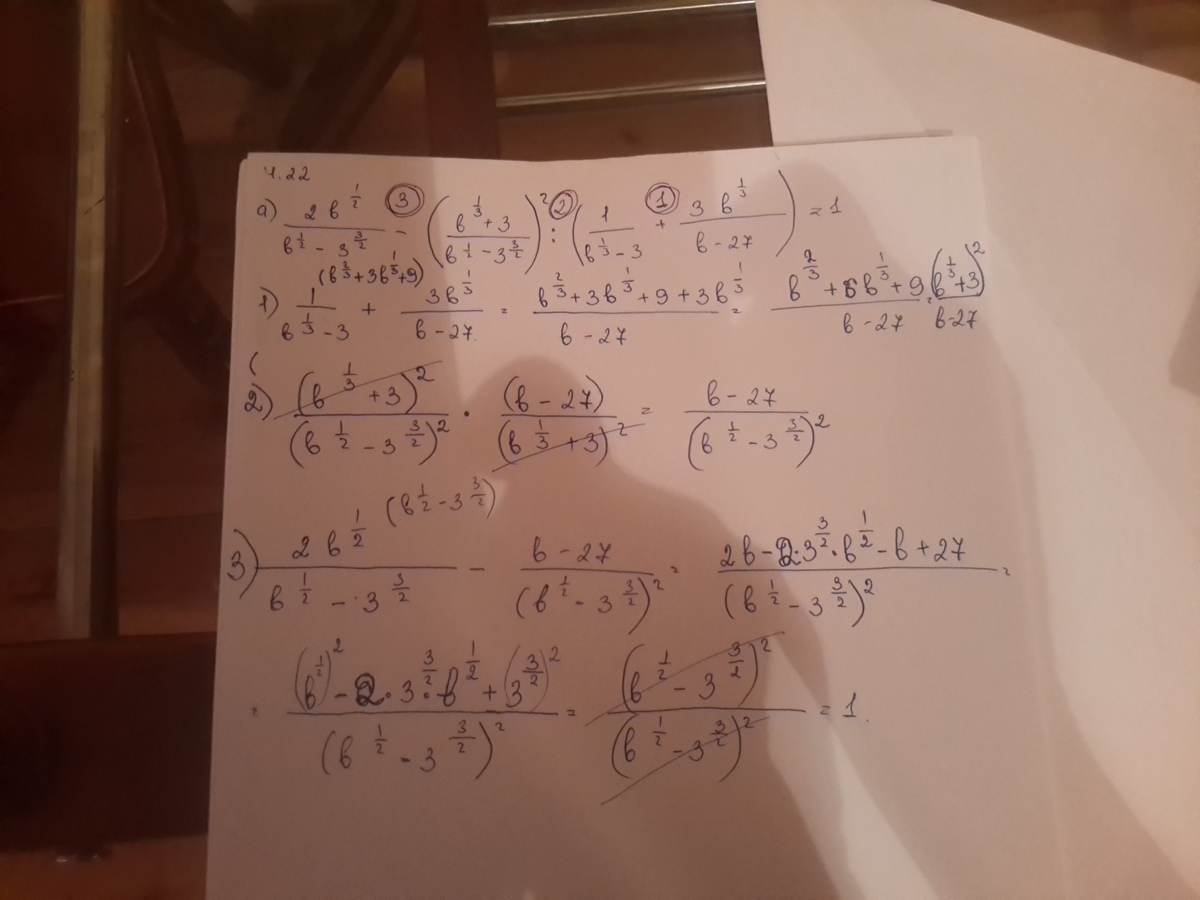 4.22
а) \frac{2в^{\frac{1}{2}}}{в^{\frac{1}{2}} - 3^{\frac{3}{2}}} ③ - \left(\frac{в^{\frac{1}{3}} + 3}{в^{\frac{1}{2}} - 3^{\frac{3}{2}}}\right)^2 ② : \left(\frac{1}{в^{\frac{1}{3}} - 3} ① + \frac{3в^{\frac{1}{3}}}{в - 27}\right) = 1
1) \frac{1}{в^{\frac{1}{3}} - 3} (в^{\frac{2}{3}} + 3в^{\frac{1}{3}} + 9) + \frac{3в^{\frac{1}{3}}}{в - 27} = \frac{в^{\frac{2}{3}} + 3в^{\frac{1}{3}} + 9 + 3в^{\frac{1}{3}}}{в - 27} = \frac{в^{\frac{2}{3}} + 6в^{\frac{1}{3}} + 9}{в - 27} = \frac{(в^{\frac{1}{3}} + 3)^2}{в - 27}
2) \frac{(в^{\frac{1}{3}} + 3)^2}{(в^{\frac{1}{2}} - 3^{\frac{3}{2}})^2} · \frac{(в - 27)}{(в^{\frac{1}{3}} + 3)^2} = \frac{в - 27}{(в^{\frac{1}{2}} - 3^{\frac{3}{2}})^2}
3) \frac{2в^{\frac{1}{2}}}{в^{\frac{1}{2}} - 3^{\frac{3}{2}}} (в^{\frac{1}{2}} - 3^{\frac{3}{2}}) - \frac{в - 27}{(в^{\frac{1}{2}} - 3^{\frac{3}{2}})^2} = \frac{2в - 2·3^{\frac{3}{2}}·в^{\frac{1}{2}} - в + 27}{(в^{\frac{1}{2}} - 3^{\frac{3}{2}})^2} =
= \frac{(в^{\frac{1}{2}})^2 - 2·3^{\frac{3}{2}}·в^{\frac{1}{2}} + (3^{\frac{3}{2}})^2}{(в^{\frac{1}{2}} - 3^{\frac{3}{2}})^2} = \frac{(в^{\frac{1}{2}} - 3^{\frac{3}{2}})^2}{(в^{\frac{1}{2}} - 3^{\frac{3}{2}})^2} = 1.